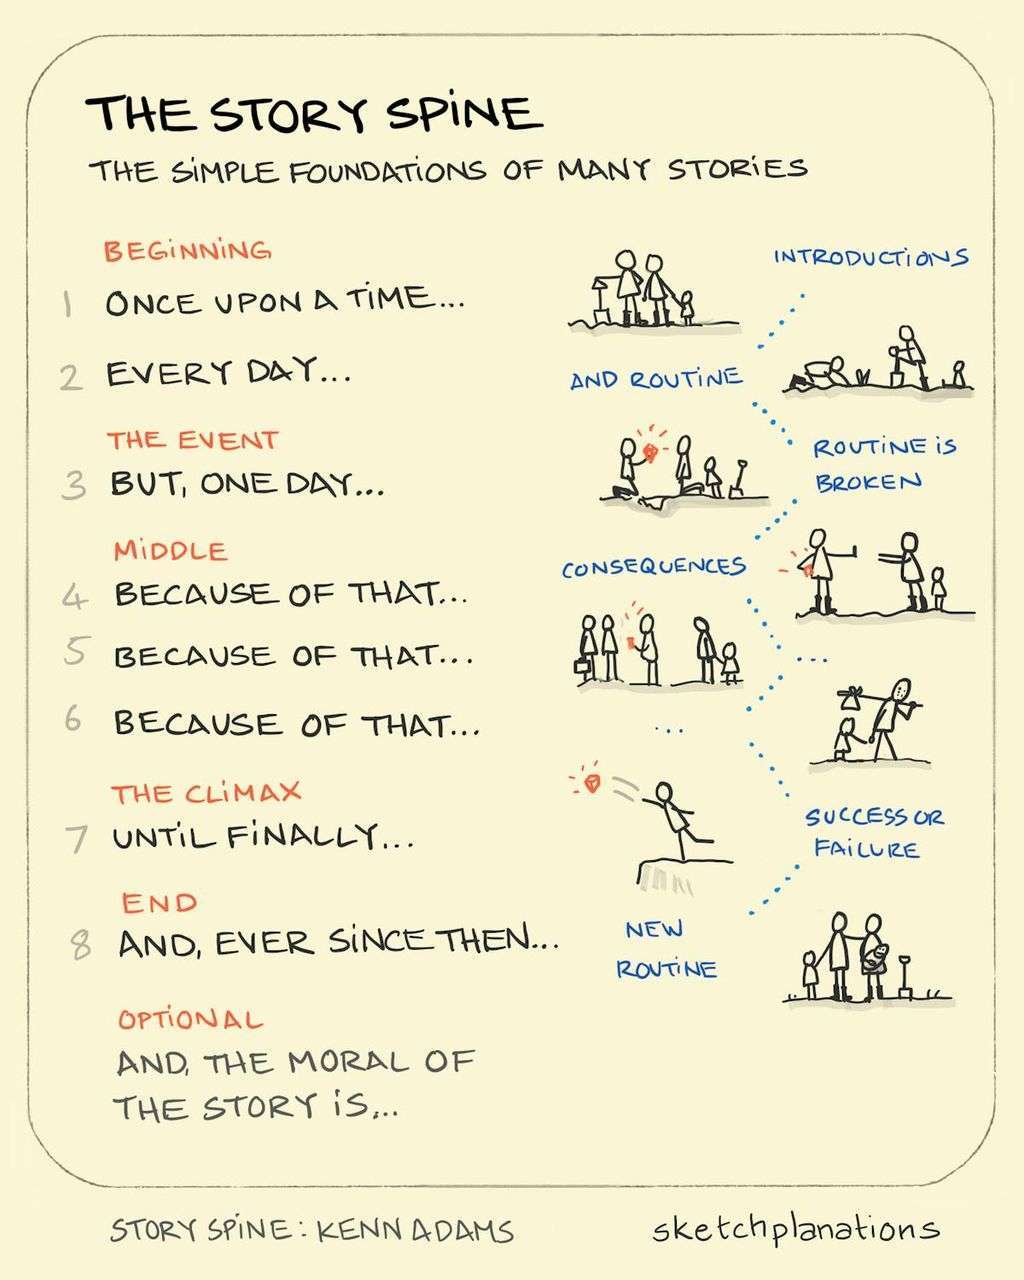 THE STORY SPINE
THE SIMPLE FOUNDATIONS OF MANY STORIES
BEGINNING
1 ONCE UPON A TIME...
2 EVERY DAY...
THE EVENT
3 BUT, ONE DAY...
MIDDLE
4 BECAUSE OF THAT...
5 BECAUSE OF THAT...
6 BECAUSE OF THAT...
THE CLIMAX
7 UNTIL FINALLY...
END
8 AND, EVER SINCE THEN...
OPTIONAL
AND, THE MORAL OF
THE STORY IS,...
INTRODUCTIONS
AND ROUTINE
ROUTINE IS
BROKEN
CONSEQUENCES
...
...
SUCCESS OR
FAILURE
NEW
ROUTINE
STORY SPINE: KENN ADAMS
sketchplanations